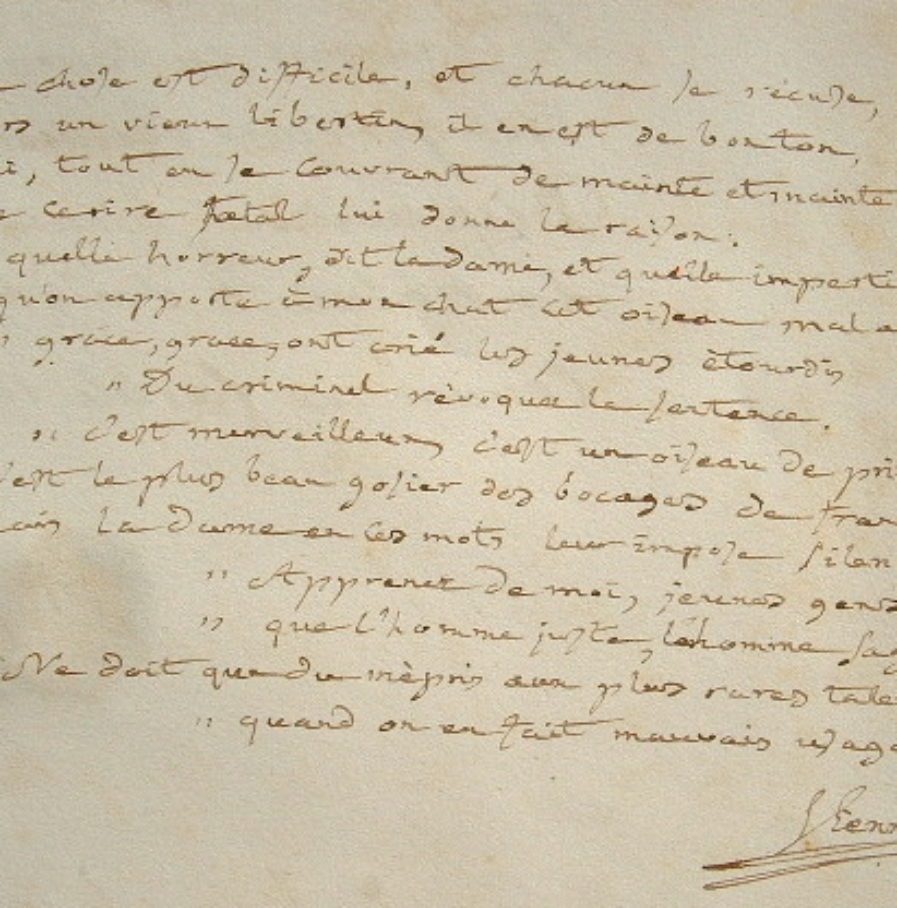 chose est difficile, et chacun se récuse,
un vieux libertin, il en est de bon ton,
i, tout en se couvrant de mainte et mainte
ce rire fatal lui donne la raison:
quelle horreur, dit la dame, et quelle imperti
qu'on apporte à mon chat cet oiseau mal a
" grâce, grace, ont crié les jeunes étourdis
" Du criminel révoquez la sentence.
" c'est merveilleux, c'est un oiseau de pri
c'est le plus beau gosier des bocages de fran
ais la Dame en ces mots leur impose silen
" Apprenez de moi, jeunes gens
" que l'homme juste, l'homme sag
Ne doit que du mépris aux plus rares tale
" quand on en fait mauvais usage